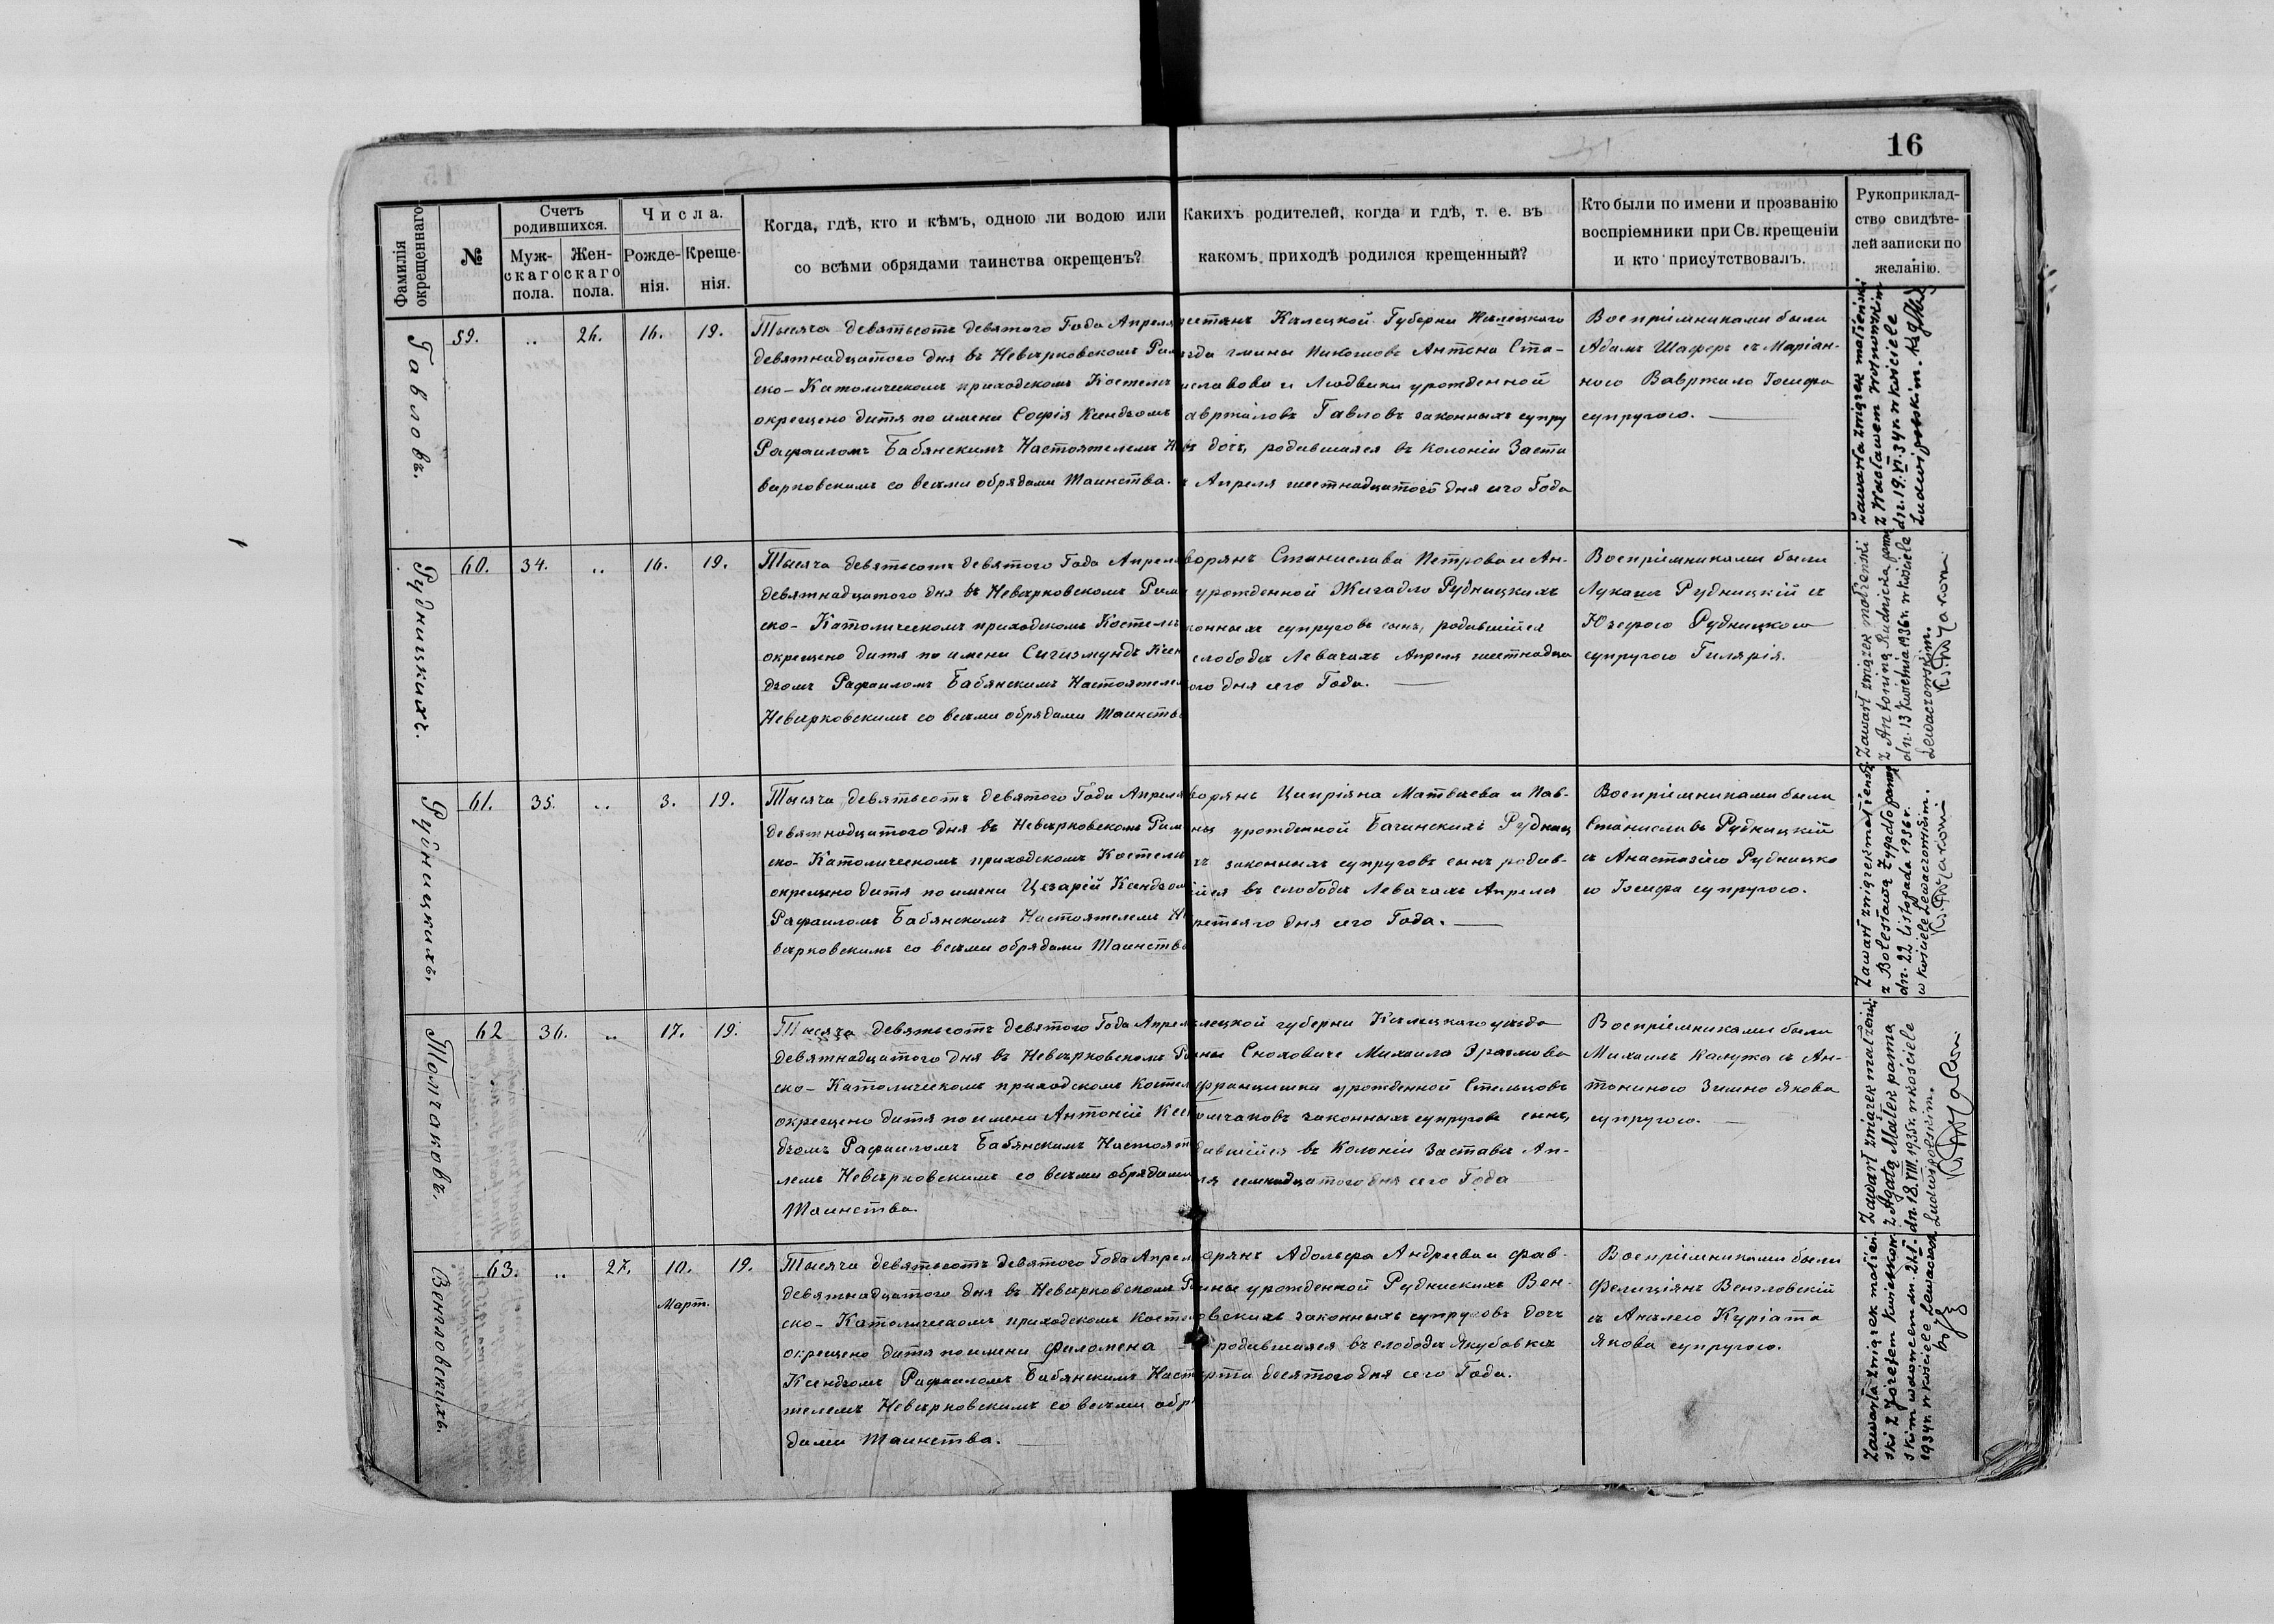 16
Фамилія окрещеннаго
№
Счетъ родившихся.
Муж-скаго пола.
Жен-скаго пола.
Числа.
Рожде-нія.
Креще-нія.
Когда, гдѣ, кто и кѣмъ, одною ли водою или
со всѣми обрядами таинства окрещенъ?
Какихъ родителей, когда и гдѣ, т. е. въ
какомъ приходѣ родился крещенный?
Кто были по имени и прозванію
воспріемники при Св. крещеніи
и кто присутствовалъ.
Рукоприклад-
ство свидѣте-
лей записки по
желанію.
Гавловъ.
59. „ 26. 16. 19.
Тысяча девятьсотъ девятого Года Апреля
девятнадцатого дня въ Невѣрковскомъ Рим
ско-Католическомъ приходскомъ Костелѣ
окрещено дитя по имени Софія Ксендзомъ
Рафаиломъ Бабянскимъ Настоятелемъ Не
вѣрковскимъ со всѣми обрядами Таинства.
Кѣлецкой Губерни Кѣлецкаго
гмины Антона Ста-
иславова и Людвики урожденной
авржаловъ Гавловъ законныхъ супру
дочь, родившаяся въ Колоніи Заста
Апреля шестнадцатого дня сего Года
Воспріемниками были
Адамъ Шаферъ съ Маріан-
ною Вавржало Іосифа
супругою.
Zawarła związek małżeński
z Wacławem Wosnowskim
dn. 19.VI.34 r. w kościele
Ludwipolskim.
Рудницкихъ.
60. 34. „ 16. 19.
Тысяча девятьсотъ девятого Года Апреля
девятнадцатого дня въ Невѣрковскомъ Рим
ско-Католическомъ приходскомъ Костелѣ
окрещено дитя по имени Сигизмундъ Ксен
дзомъ Рафаиломъ Бабянскимъ Настоятелем
Невѣрковскимъ со всѣми обрядами Таинства
ворянъ Станислава Петрова и Ан-
урожденной Жигадло Рудницкихъ
конныхъ супруговъ сынъ, родившійся
слободѣ Левачахъ Апреля шестнадца
ого дня сего Года.
Воспріемниками были
Лукашъ Рудницкій съ
Юзефою Рудницкою
супругою Гилярія.
Zawarł związek małżeński
z Antoniną Rudnicką panną
dn. 13 kwietnia 1936 r. w kościele
Lewaczowskim.
Рудницкихъ.
61. 35. „ 3. 19.
Тысяча девятьсотъ девятого Года Апреля
девятнадцатого дня въ Невѣрковскомъ Рим
ско-Католическомъ приходскомъ Костелѣ
окрещено дитя по имени Цезарій Ксендзом
Рафаиломъ Бабянскимъ Настоятелемъ Не
вѣрковскимъ со всѣми обрядами Таинства
ворянъ Ципріяна Матвѣева и Пав-
ны урожденной Багинскихъ Рудниц
хъ законныхъ супруговъ сынъ родив-
ійся въ слободѣ Левачахъ Апреля
ретьяго дня сего Года.
Воспріемниками были
Станиславъ Рудницкій
съ Анастазіею Рудницко
ю Іосифа супругою.
Zawarł związek małżeński
z Bolesławą Żygadło panną
dn. 22 listopada 1936 r.
w kościele Lewaczowskim.
Толчаковъ.
62 36. „ 17. 19.
Тысяча девятьсотъ девятого Года Апреля
девятнадцатого дня въ Невѣрковскомъ Рим
ско-Католическомъ приходскомъ Костел
окрещено дитя по имени Антоній Ксен
дзомъ Рафаиломъ Бабянскимъ Настояте
лемъ Невѣрковскимъ со всѣми обрядами
Таинства.
лецкой губерни Кѣлецкаго уѣзда
Михаила
Францишки урожденной Стельцовъ
олчаковъ законныхъ супруговъ сынъ,
дившійся въ Колоніи Застава Ап-
ля семнадцатого дня сего Года
Воспріемниками были
Михаилъ Калужа съ Ан-
тониною Зимно Якова
супругою.
Zawarł związek małżeński
z Agatą Małek panną
dn. 18.VIII.1935 r. w kościele
Ludwipolskim.
Венгловскихъ.
63. „ 27. 10. 19.
Март.
Тысяча девятьсотъ девятого Года Апрел
девятнадцатого дня въ Невѣрковскомъ Рим
ско-Католическомъ приходскомъ Костел
окрещено дитя по имени Филомена
Ксендзомъ Рафаиломъ Бабянскимъ Насто
телемъ Невѣрковскимъ со всѣми обр
дами Таинства.
орянъ Адольфа Андреева и
урожденной Руднискихъ Вен-
ловскихъ законныхъ супруговъ дочь
родившаяся въ слободѣ Якубовка
рта десятого дня сего Года.
Воспріемниками были
Феликіянъ Венгловскій
съ Анѣлею Куріата
Якова супругою.
Zawarła związek małżeń-
ski z Józefem Kwiatkow-
skim wdowcem dn. 24.I.
1934 r. w kościele Lewaczow